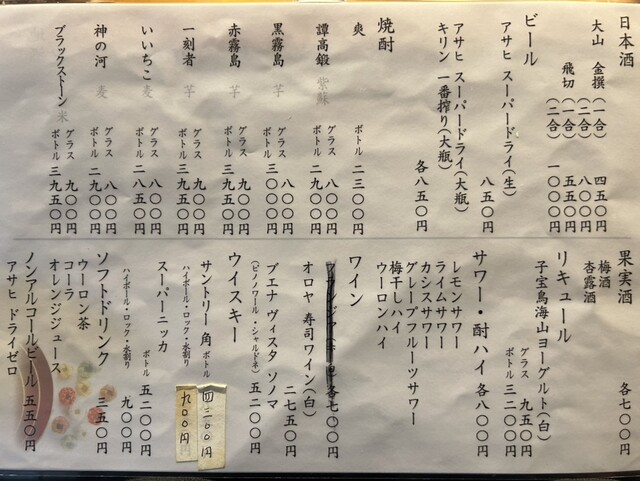 日本酒
大山 金撰(一合) 四五〇円
(二合) 八〇〇円
飛切(一合) 五五〇円
(二合) 一〇〇〇円
ビール
アサヒ スーパードライ(生) 八五〇円
アサヒ スーパードライ(大瓶)
キリン 一番搾り(大瓶) 各八五〇円
焼酎
爽 ボトル 二三〇〇円
譚高鍛 紫蘇 グラス 八〇〇円
ボトル 二九〇〇円
黒霧島 芋 グラス 八〇〇円
ボトル 三〇〇〇円
赤霧島 芋 グラス 九〇〇円
ボトル 三九五〇円
一刻者 芋 グラス 九〇〇円
ボトル 三九五〇円
いいちこ 麦 グラス 八〇〇円
ボトル 二八五〇円
神の河 麦 グラス 八〇〇円
ボトル 二九〇〇円
ブラックストーン 米 グラス 九〇〇円
ボトル 三九五〇円
果実酒
梅酒
杏露酒 各七〇〇円
リキュール
子宝鳥海山ヨーグルト(白)
グラス 九五〇円
ボトル 三二〇〇円
サワー・酎ハイ 各八〇〇円
レモンサワー
ライムサワー
カシスサワー
グレープフルーツサワー
梅干しハイ
ウーロンハイ
ワイン
各七〇〇円
オロヤ 寿司ワイン(白) 二七五〇円
ブエナ ヴィスタ ソノマ
(ピノノワール・シャルドネ) 五二〇〇円
ウイスキー
サントリー 角 ボトル 四二〇〇円
ハイボール・ロック・水割り 九〇〇円
スーパーニッカ ボトル 五二〇〇円
ハイボール・ロック・水割り 九〇〇円
ソフトドリンク 三五〇円
ウーロン茶
コーラ
オレンジジュース
ノンアルコールビール 五五〇円
アサヒ ドライゼロ